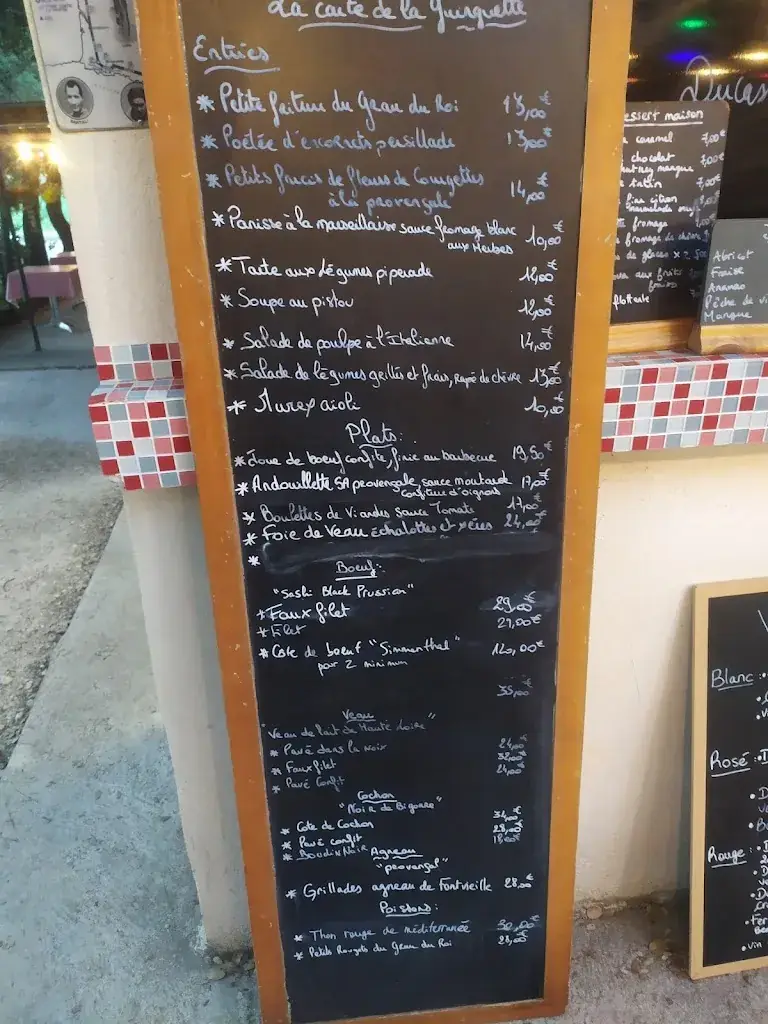 La carte de la Guinguette
Entrées
* Petite friture du Grau du Roi 13,00€
* Poêlée d'escargots persillade 13,00€
* Petits farcis de fleurs de Courgettes
à la provençale 14,00€
* Panisse à la marseillaise sauce fromage blanc
aux Herbes 10,00€
* Tarte aux légumes piperade 12,00€
* Soupe au pistou 12,00€
* Salade de poulpe à l'Italienne 14,50€
* Salade de légumes grillés et frais, rapé de chèvre 13,50€
* Murex aioli 10,50€
Plats:
* Joue de boeuf confite, finie au barbecue 19,50€
* Andouillette 5A provençale, sauce moutarde 17,00€
confiture d'oignons
* Boulettes de Viandes sauce Tomate 17,00€
* Foie de Veau échalottes et 24,00€
*
Boeuf:
"Sashi Black Prussion"
* Faux filet 29,00€
* Filet 29,00€
* Côte de boeuf "Simmenthal" 120,00€
pour 2 minimum
35,00€
Veau
"Veau de lait de Haute Loire"
* Pavé dans la Noix 24,00€
* Faux filet 32,00€
* Pavé Confit 24,00€
Cochon
"Noir de Bigorre"
* Cote de Cochon 34,00€
* Pavé confit 28,00€
* Boudin Noir 18,00€
Agneau
"provençal"
* Grillades agneau de Fontvieille 28,00€
Poissons:
* Thon rouge de méditerranée 30,00€
* Petits Rougets du Grau du Roi 28,00€
Ducas
dessert maison
caramel 7,00€
chocolat 7,00€
tatin 7,00€
citron
fromage
fromage de chèvre
aux fruits
flottante
Abricot
Fraise
Ananas
Pêche de vi
Mangue
V
Blanc:
Rosé:
Rouge: